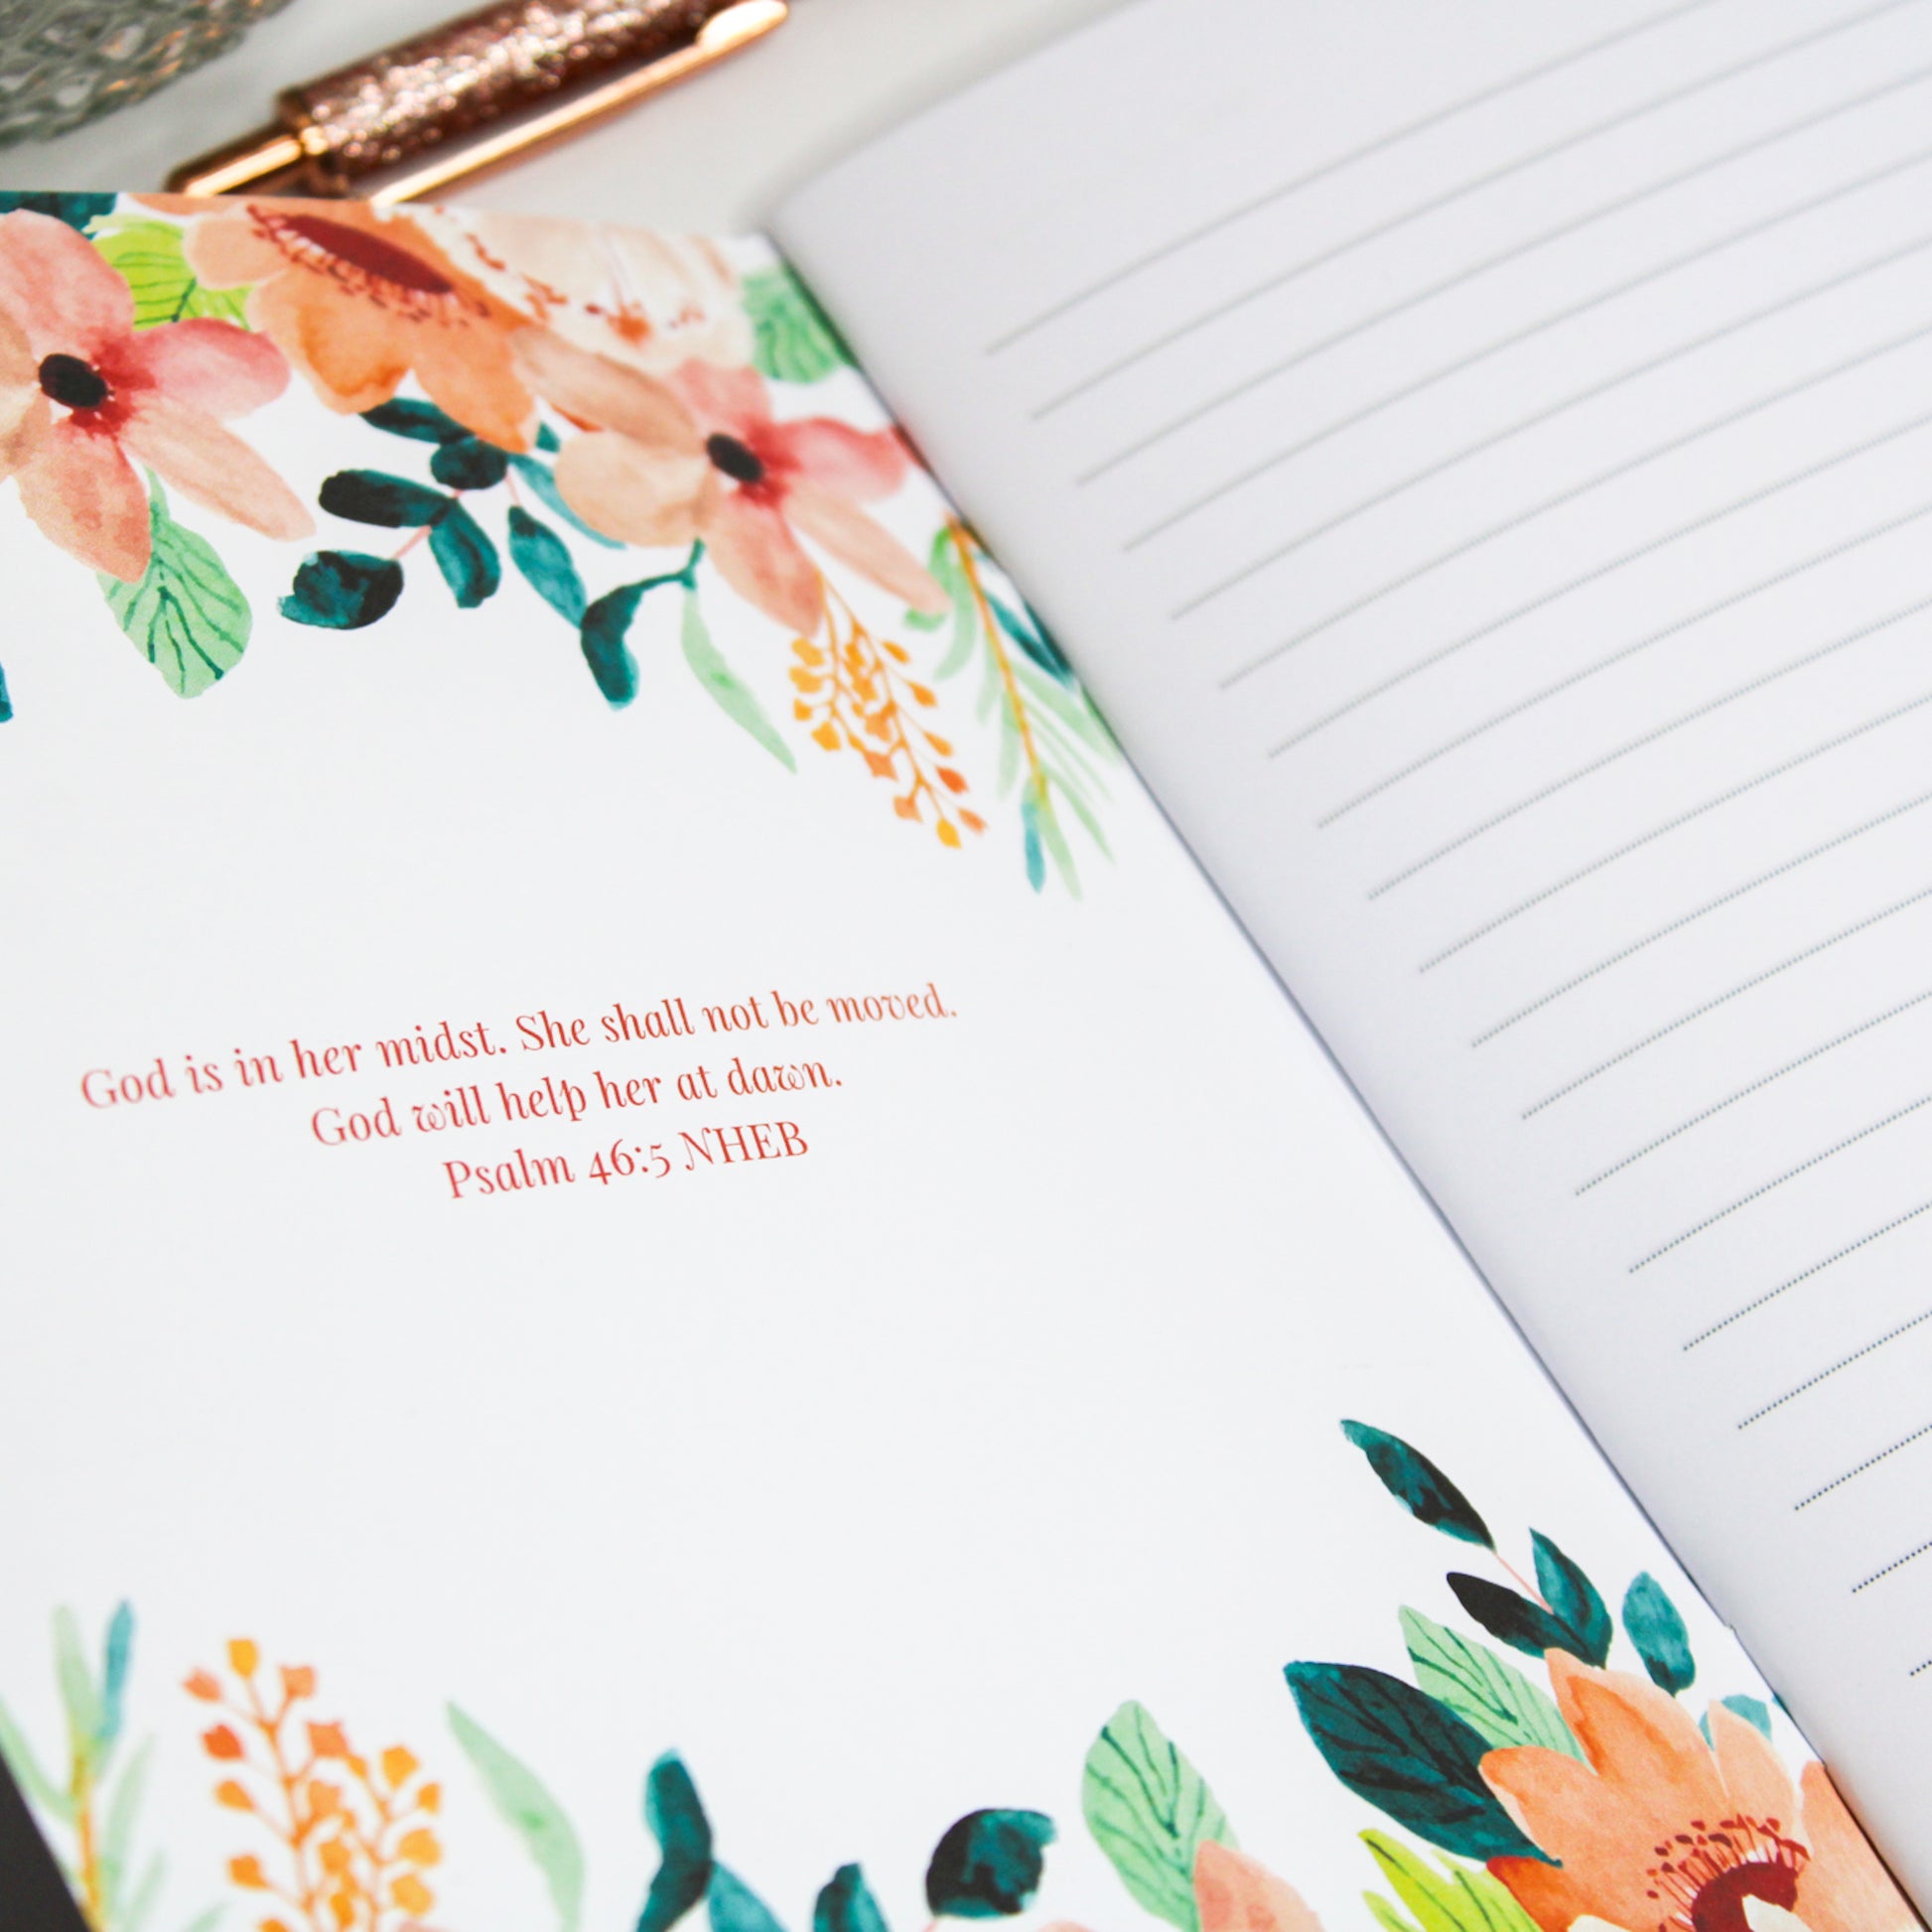 God is in her midst. She shall not be moved.
God will help her at dawn.
Psalm 46:5 NHEB